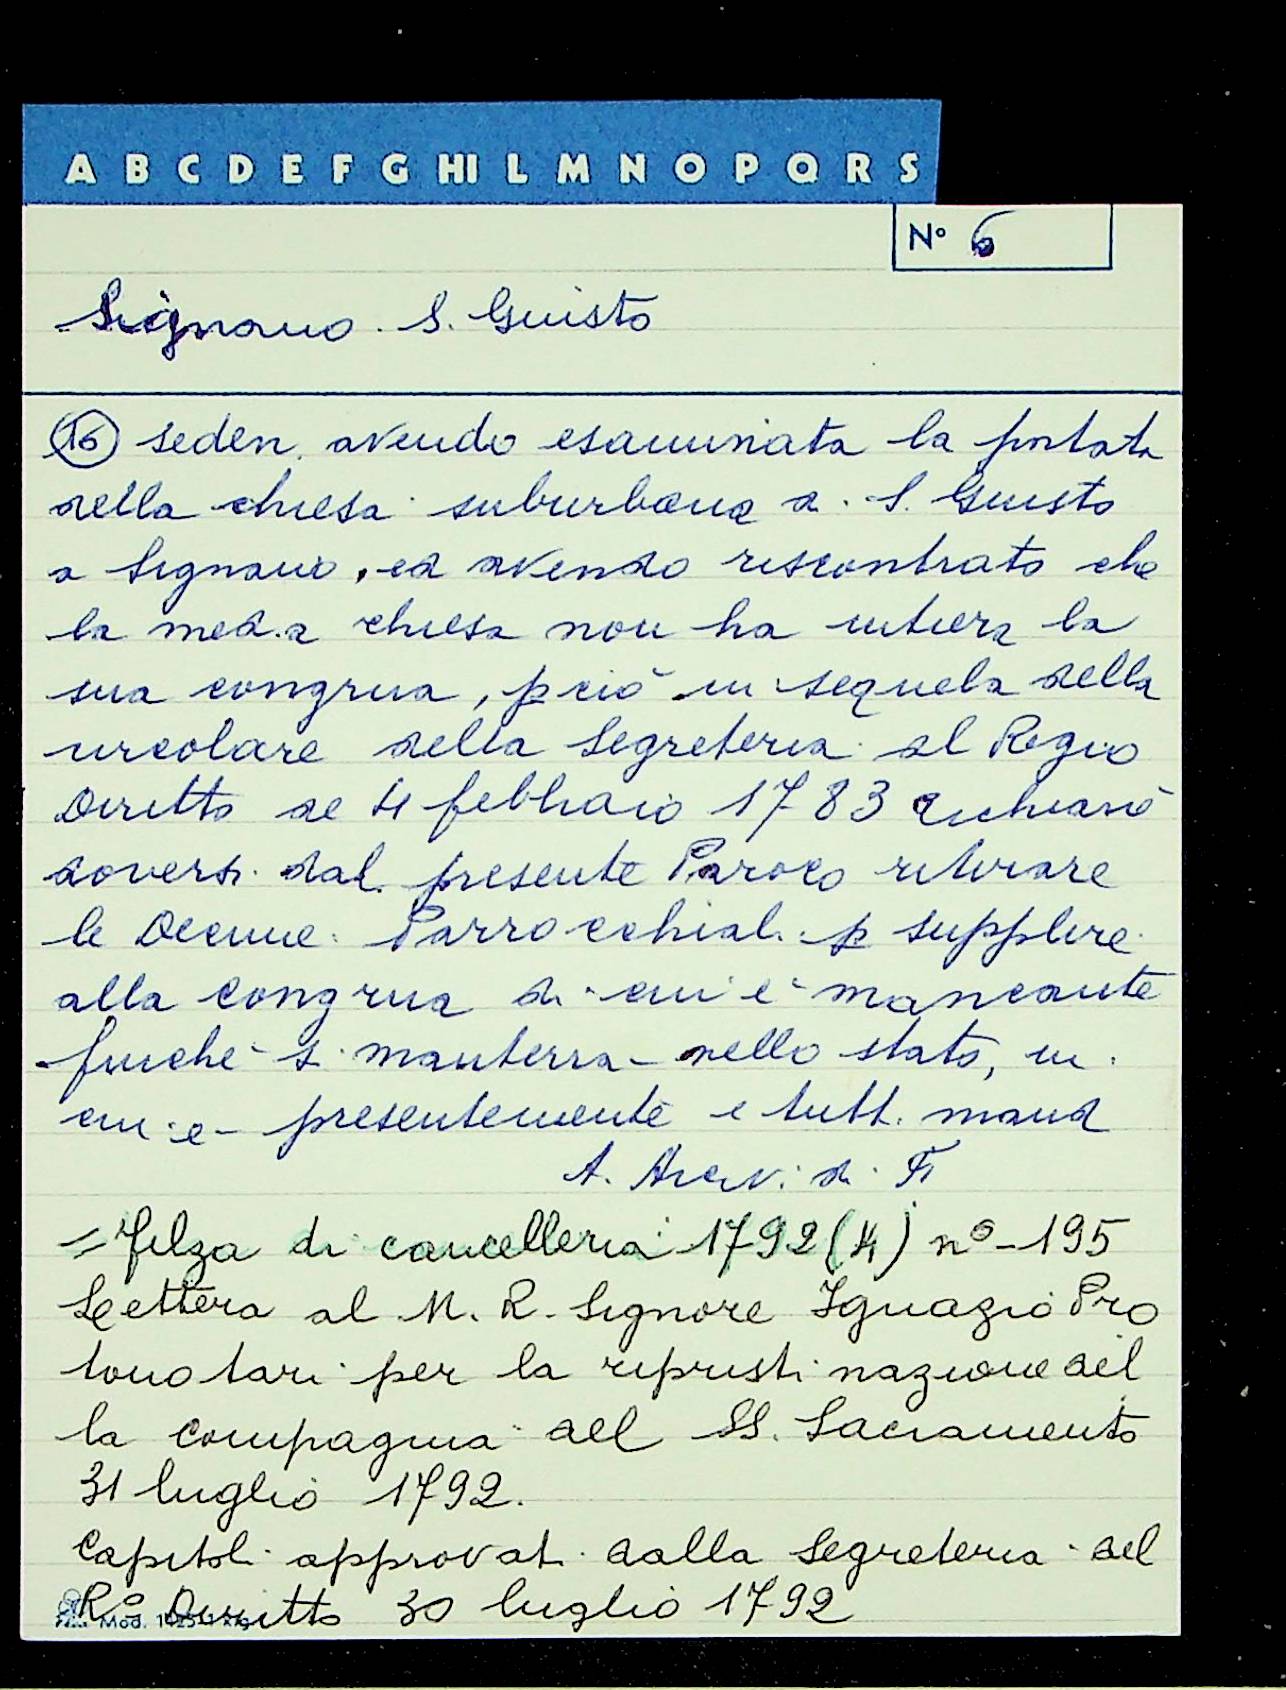 A B C D E F G HI L M N O P Q R S
N° 6
Signano. S. Giusto
16 seden. avendo esaminata la portata
della chiesa suburbana di S. Giusto
a Signano, ed avendo riscontrato che
la med.a chiesa non ha intiera la
sua congrua, p ciò in sequela della
circolare della Segreteria al Regio
Diritto de 4 febbraio 1783 dichiarò
doversi dal presente Paroco ritirare
le Decime Parrocchiali p supplire
alla congrua di cui è mancante
finchè si manterrà nello stato, in
cui è presentemente e tutt. mand
A. Arciv. di Fi
= Filza di cancelleria 1792 (4) n° - 195
Lettera al M. R. Signore Ignazio Pro
tonotari per la ripristinazione del
la Compagnia del SS. Sacramento
31 luglio 1792.
Capitoli approvati dalla Segreteria del
R° Diritto 30 luglio 1792
Mod.